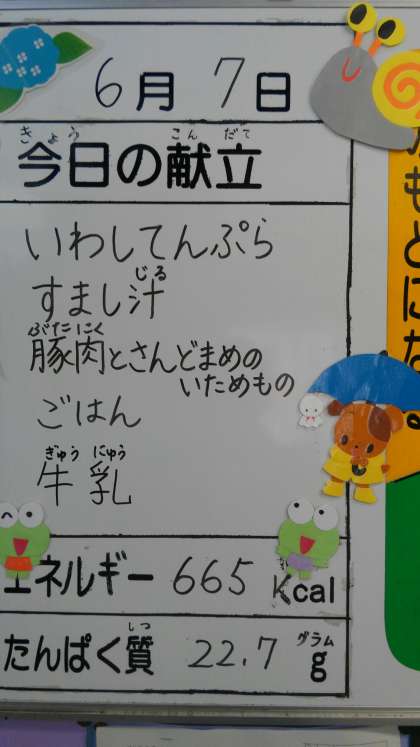 6月 7日
きょう こんだて
今日の献立
いわしてんぷら
じる
すまし汁
ぶたにく
豚肉とさんどまめの
いためもの
ごはん
ぎゅう にゅう
牛乳
エネルギー 665 Kcal
しつ グラム
たんぱく質 22.7 g
もとにな
。